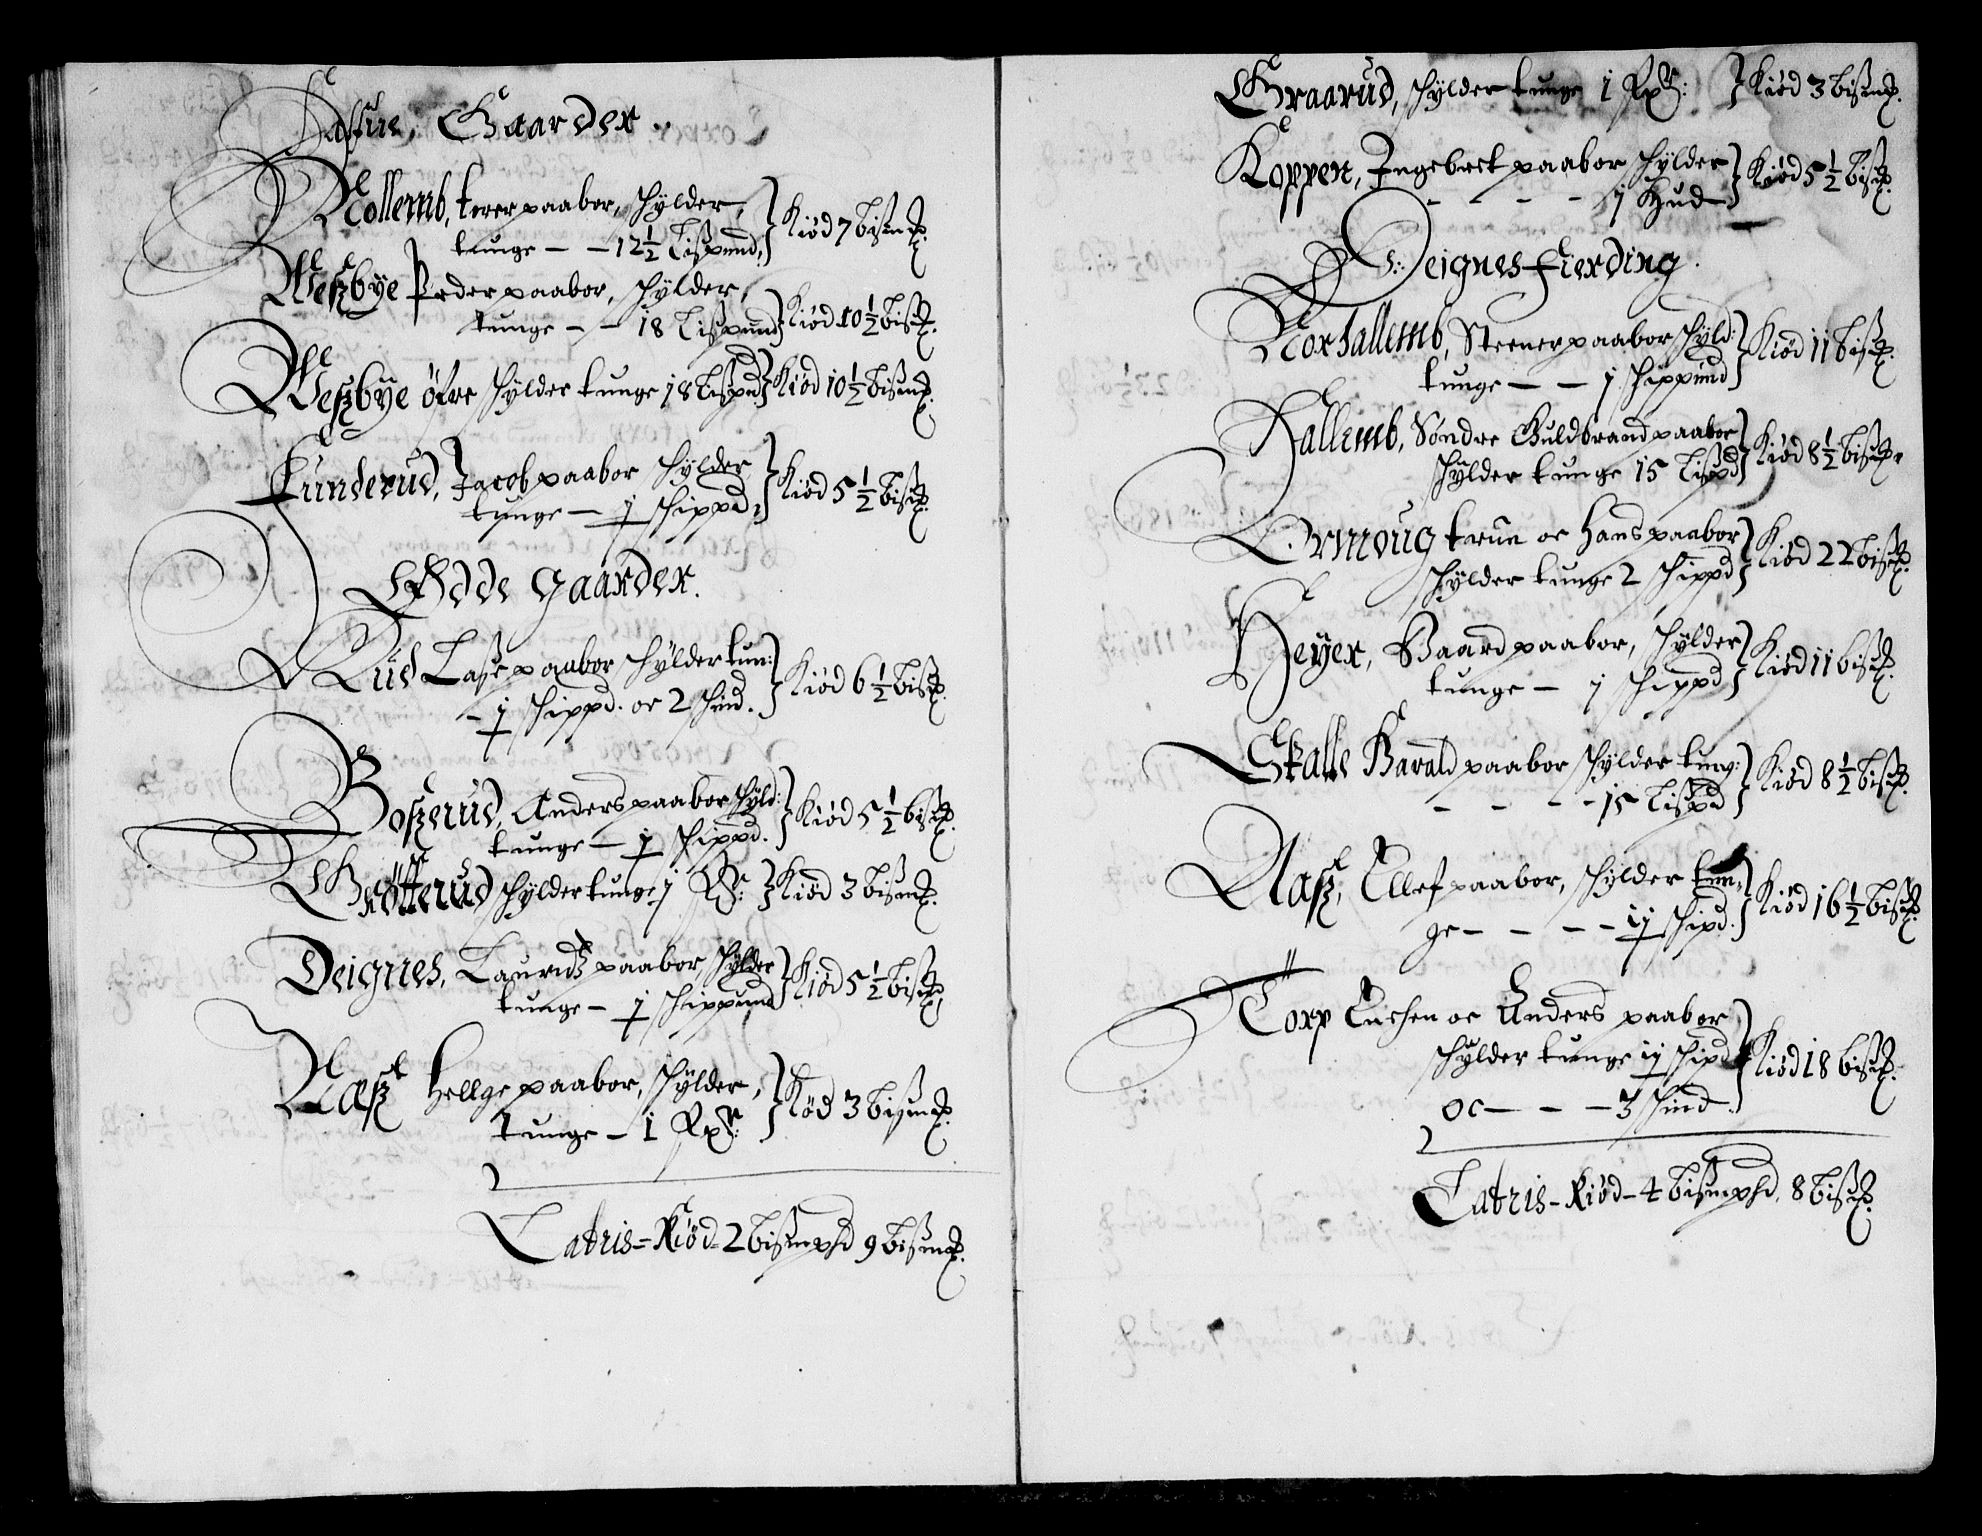 Gaarder.
Rollemb, torer paabor, schylder,
tunge – – 12½ Lispund, } Kiød 7 bism℔.
Wessbye Peder paabor, schylder,
tunge – – 18 Lispund } Kiød 10½ bism℔.
Wessbye öfre schylder tunge 18 Lispd } Kiød 10½ bism℔.
Funderud, Jacob paabor schylder
tunge – ɉ schippd, } Kiød 5½ bism℔.
Ødde Gaarder.
Rud Lasse paabor schylder tun:
– ɉ schippd. oc 2 schind. } Kiød 6½ bism℔.
Bosserud, Anders paabor schyld:
tunge – ɉ schippd. } Kiød 5½ bism℔.
Grötterud schylder tunge j Rxdr: } Kiød 3 bism℔.
Deignes, Lauridz paabor, schylder
tunge – ɉ schippund } Kiød 5½ bism℔,
Nass Hellge paabor, schylder,
tunge – 1 Rxdr: } Kiød 3 bism℔.
Latris – Kiød – 2 bismphd 9 bism℔.
Graarud, schylder tunge 1 Rxdr: } Kiød 3 bism℔.
Koppen, Ingebret paabor schylder
– – – – j Hud } Kiød 5½ bism℔.
Deignes fierding.
Nordallemb, Steener paabor schyld:
tunge – – j schippund } Kiød 11 bism℔.
Hallemb, Søndre Guldbrand paabor
schylder tunge 15 Lispd } Kiød 8½ bism℔
Ormoug trun oc Hans paabor
schylder tunge 2 schippd } Kiød 22 bism℔.
Heyer, Baard paabor, schylder
tunge – j schippd } Kiød 11 bism℔.
Skalle Harald paabor schylder tung:
– – – – 15 Lispd } Kiød 8½ bism℔.
Aass, Ellef paabor, schylder tun,
ge – – – – ijɉ schipd. } Kiød 16½ bism℔.
Torp Enchen oc Anders paabor
schylder tunge ijɉ schipd } Kiød 18 bism℔.
oc – – – 3 schind.
Latris – Kiød – 4 bismphd, 8 bism℔.